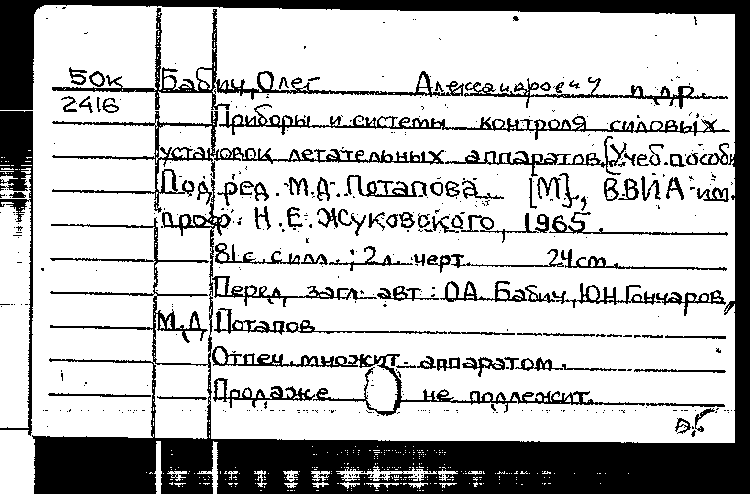 50к Бабич, Олег Александрович и др.
2416
Приборы и системы контроля силовых
установок летательных аппаратов. [Учеб. пособи
Под ред. М.Д. Потапова. [М]., ВВИА им.
проф. Н.Е. Жуковского, 1965.
81 с. с илл.; 2 л. черт. 24 cm.
Перед загл. авт: О.А. Бабич, Ю.Н. Гончаров,
М.Д. Потапов
Отпеч. множит. аппаратом.
Продаже не подлежит.